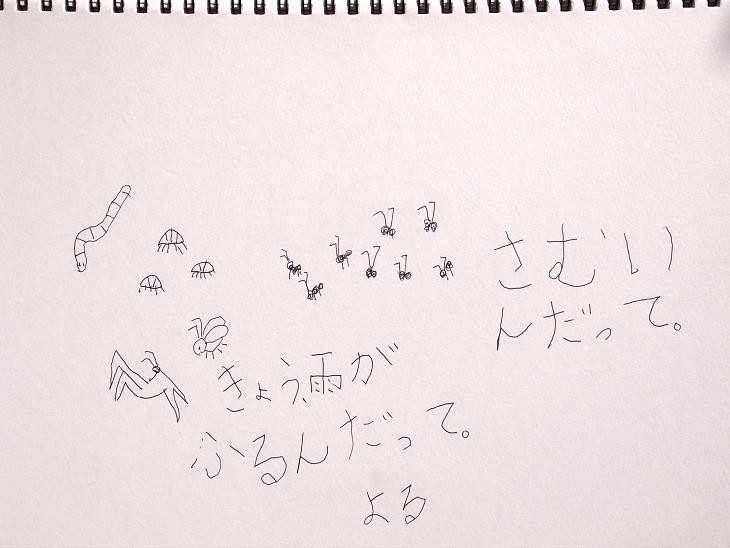 さむい
んだって。
きょう、雨が
ふるんだって。
よる